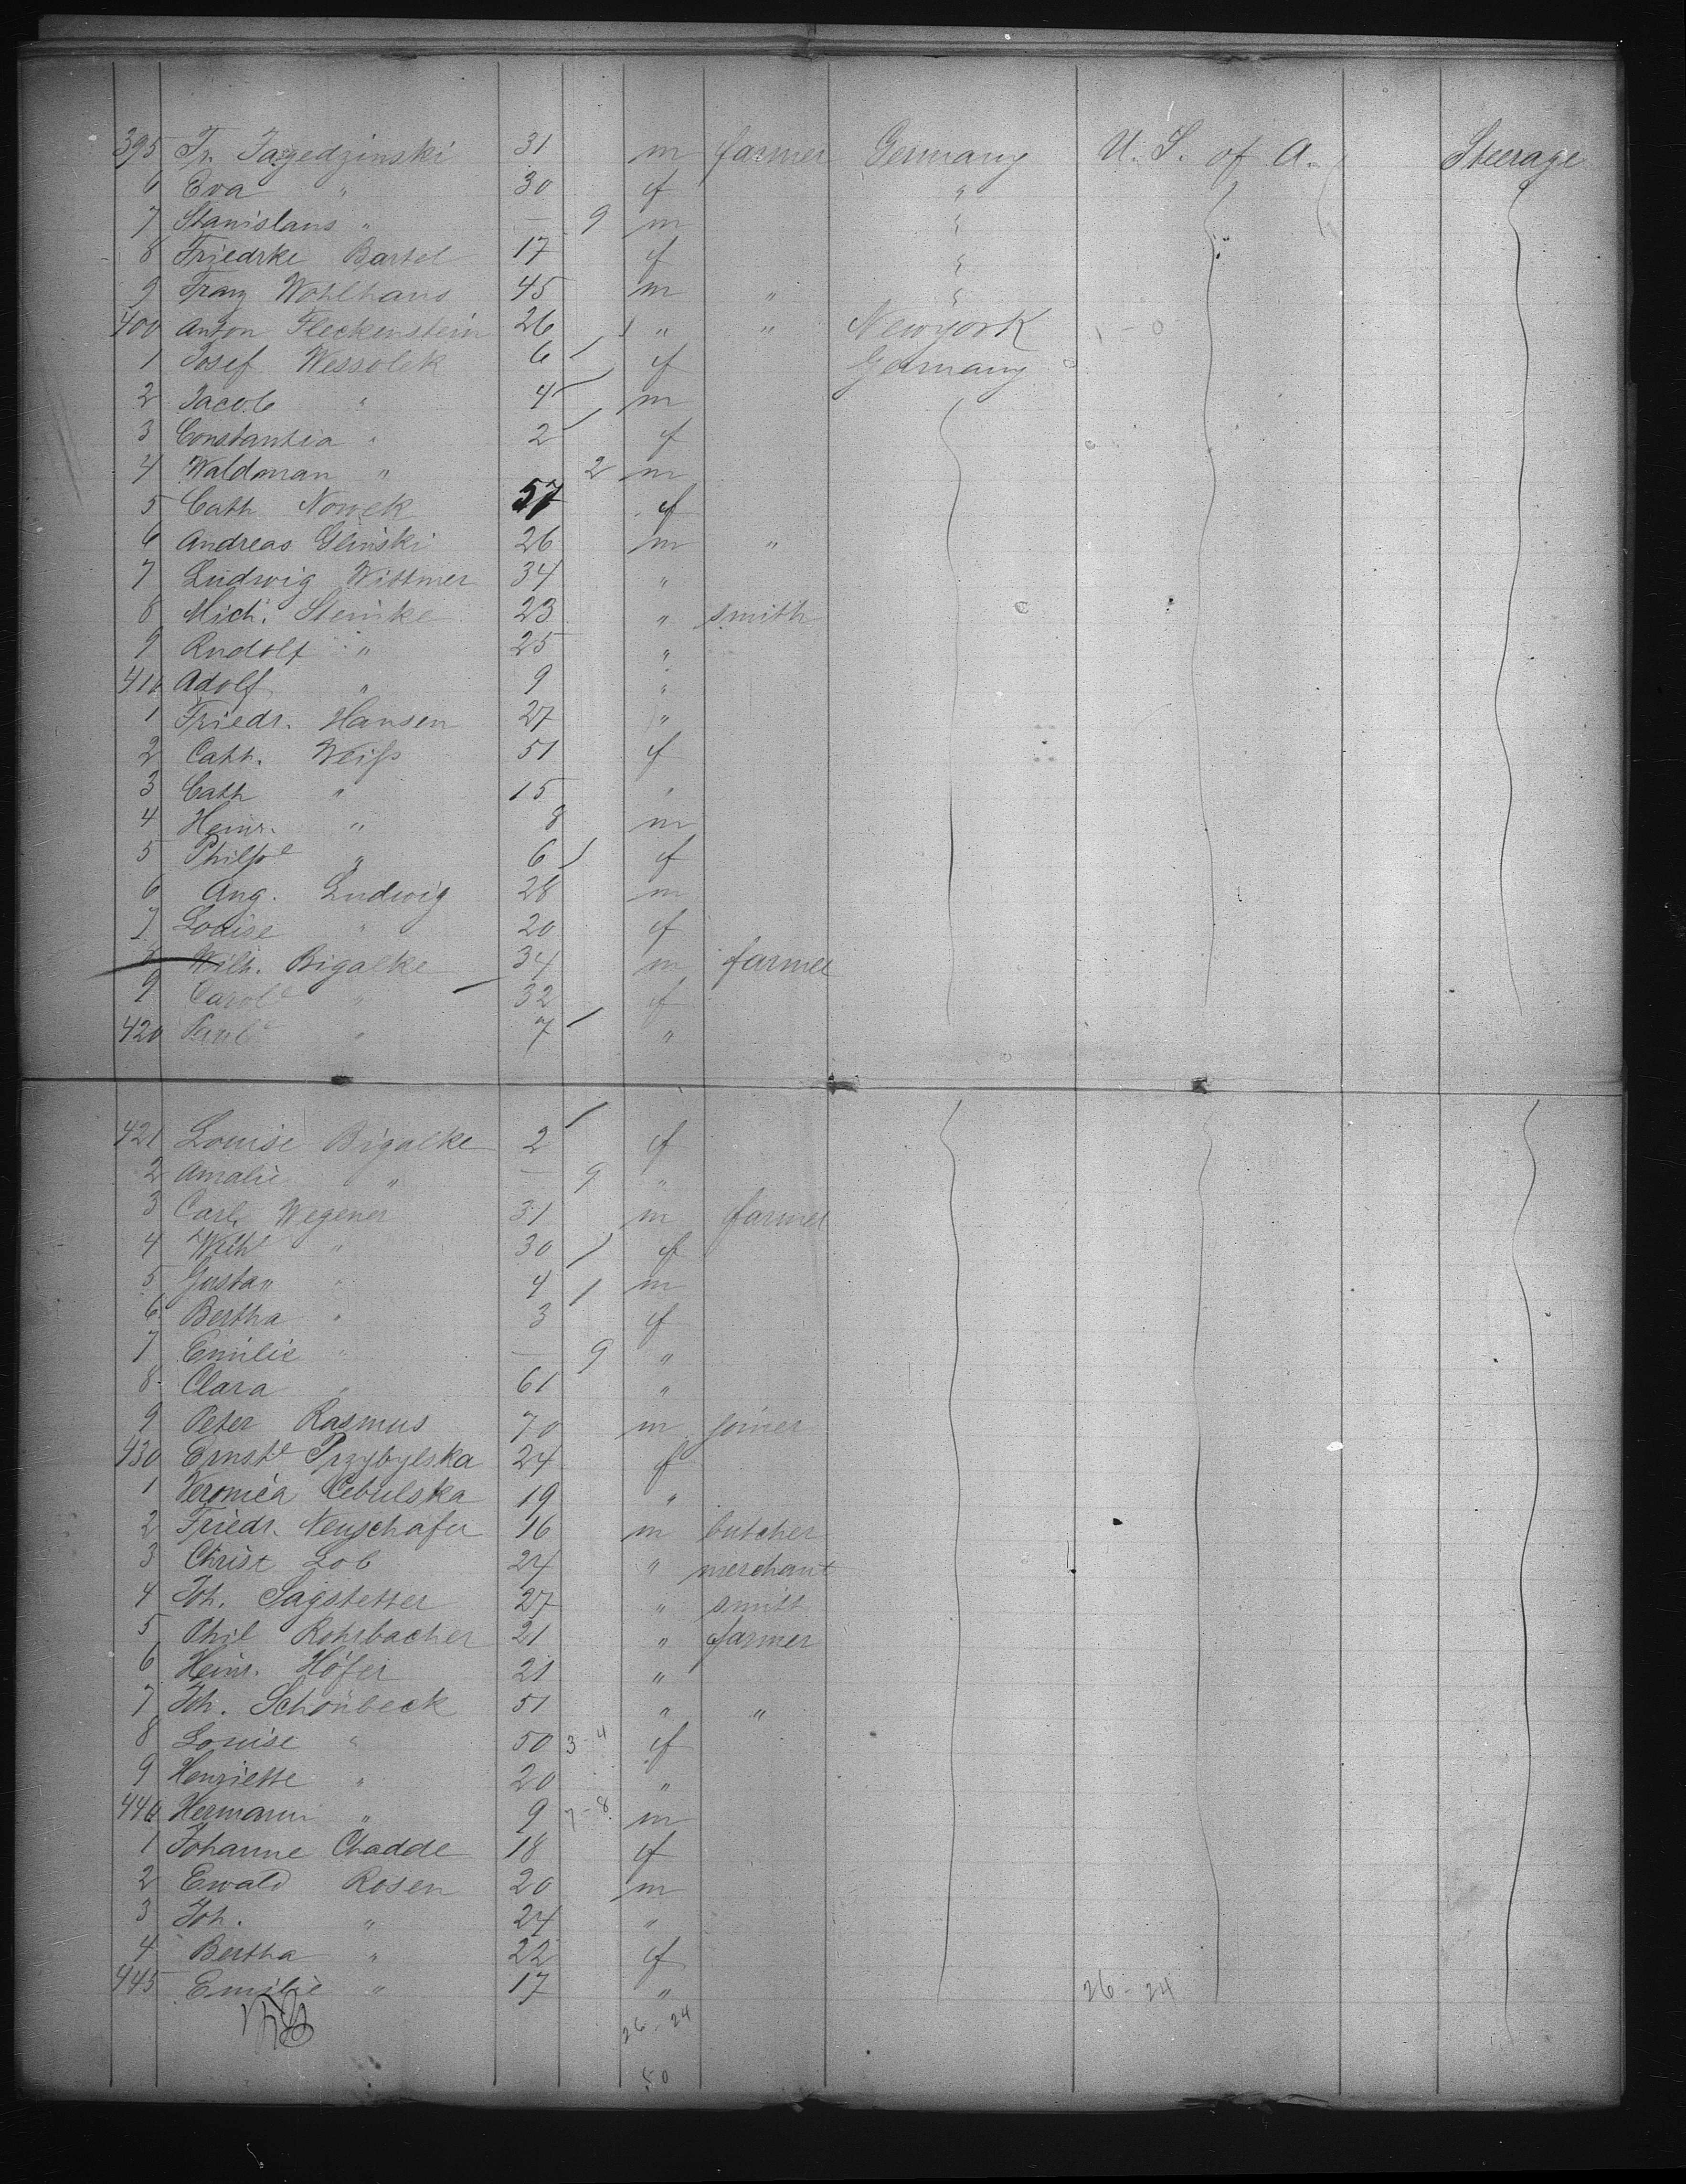 395 Fr. Jagedzinski 31 m farmer Germany U. S. of A. Steerage
6 Eva " 30 f "
7 Stanislaus " — 9 m "
8 Friedrke Bartel 17 f "
9 Franz Wohlhans 45 m " "
400 Anton Fleckenstein 26 " " Newyork
1 Josef Wessolek 6 f Germany
2 Jacob " 4 m
3 Constantia " 2 f
4 Waldman " 2 m
5 Cath. Nowek 57 f
6 Andreas Glinski 26 m "
7 Ludwig Wittmer 34 "
8 Mich. Steinke 23 " smith
9 Rudolf " 25 "
410 Adolf " 9 "
1 Friedr. Hansen 27 "
2 Cath. Weiß 51 f
3 Cath " 15 "
4 Heinr. " 8 m
5 Philpe " 6 f
6 Aug. Ludwig 28 m
7 Louise " 20 f
8 Wilh. Bigalke 34 m farmer
9 Carole " 32 f
420 " 7 "
421 Louise Bigalke 2 f
2 Amalie " — 9 "
3 Carl Wegener 31 m farmer
4 Wilhe " 30 f
5 Gustav " 4 m
6 Bertha " 3 f
7 Emilie " — 9 "
8 Clara " 61 "
9 Peter Rasmus 70 m joiner
430 Ernste Przybylska 24 f
1 Veronica Cebulska 19 "
2 Friedr. Neuschafer 16 m butcher
3 Christ Lob 24 " merchant
4 Joh. Sagstetter 27 " smith
5 Phil Rohrbacher 21 " farmer
6 Heinr. Höfer 21 "
7 Joh. Schönbeck 51 " "
8 Louise " 50 3-4 f
9 Henriette " 20 "
440 Hermann " 9 7-8 m
1 Johanne Chadde 18 f
2 Ewald Rosen 20 m
3 Joh. " 24 "
4 Bertha " 22 f
445 Emilie " 17 " 26-24
26-24
50